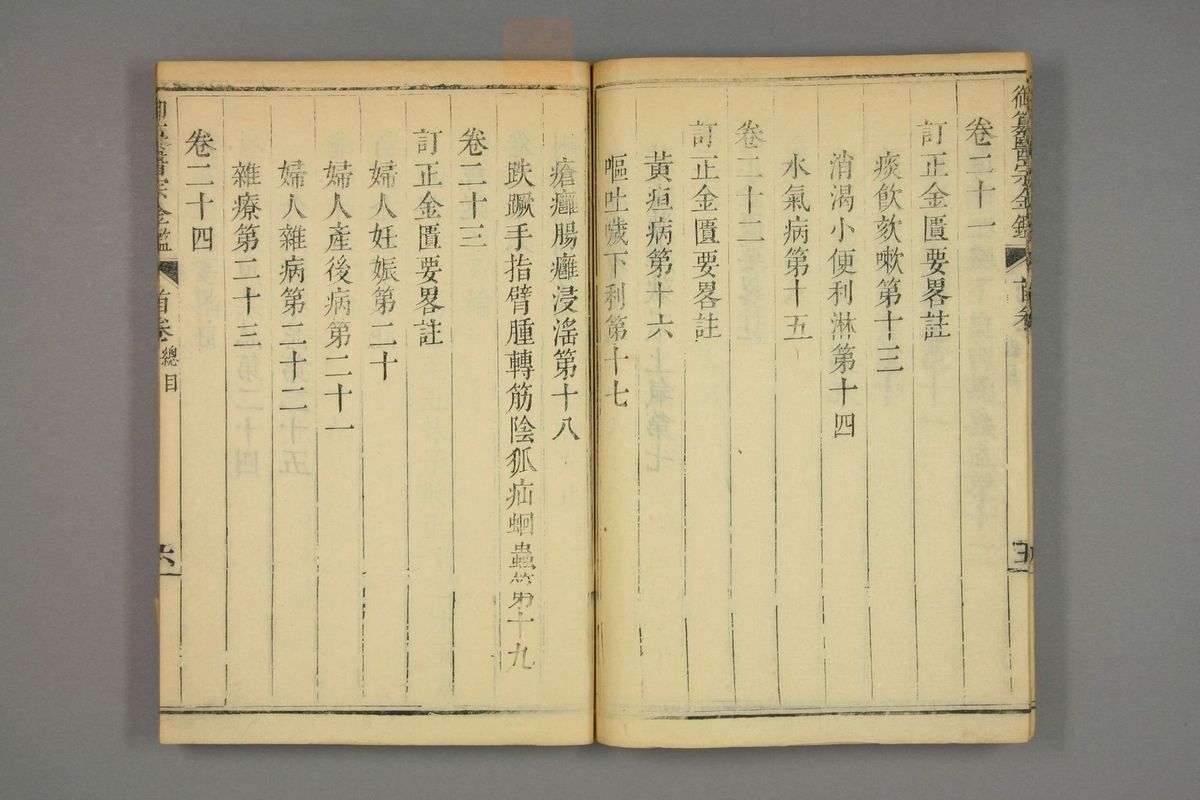 御纂醫宗金鑑 首卷
卷二十一
訂正金匱要畧註
痰飲欬嗽第十三
消渴小便利淋第十四
水氣病第十五
卷二十二
訂正金匱要畧註
黃疸病第十六
嘔吐噦下利第十七
瘡癰腸癰浸滛第十八
趺蹶手指臂腫轉筋陰狐疝蛔蟲第十九
卷二十三
訂正金匱要畧註
婦人妊娠第二十
婦人產後病第二十一
婦人雜病第二十二
雜療第二十三
卷二十四
御纂醫宗金鑑 首卷 總目 六